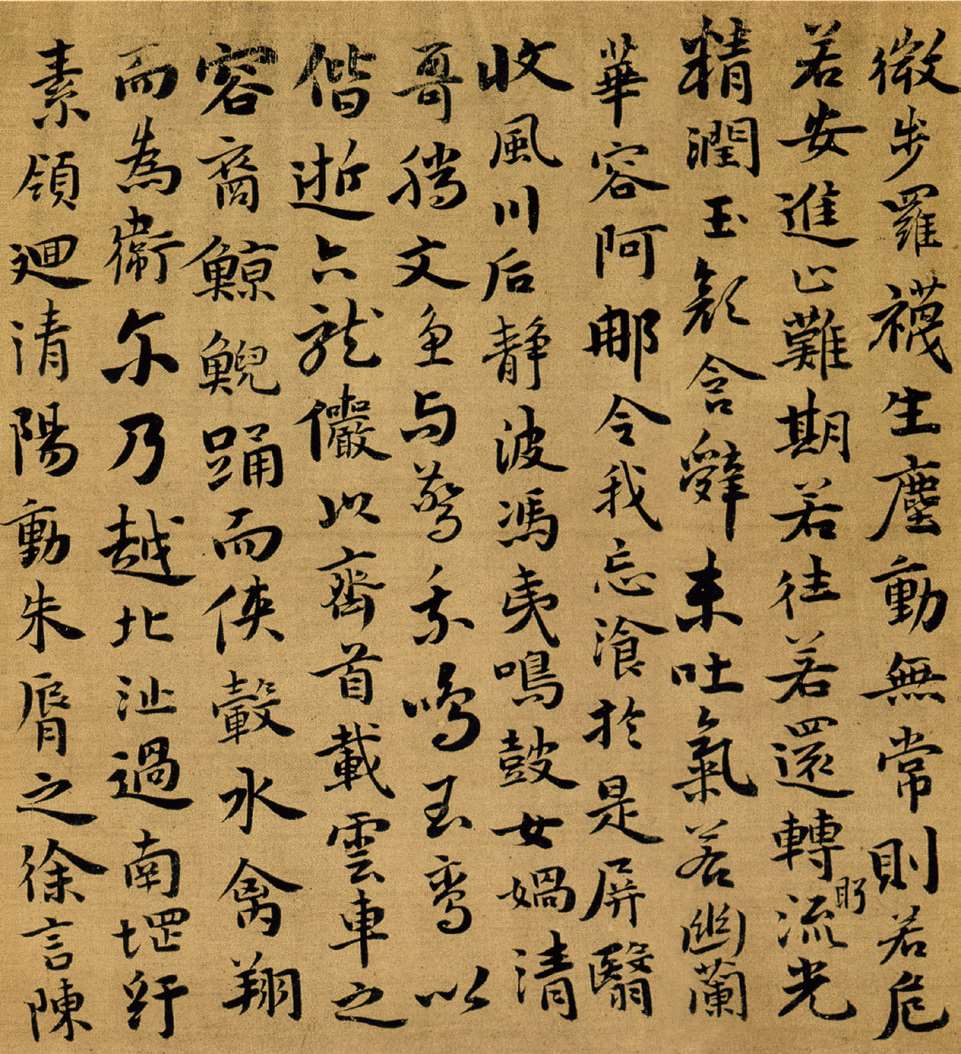 微步羅襪生塵動無常則若危
若安進止難期若往若還轉眄流光
精潤玉顏含辭未吐氣若幽蘭
華容阿那令我忘飡於是屏翳
收風川后靜波馮夷鳴鼓女媧清
哥騰文魚与警乘鳴玉鸞以
偕逝六龍儼以齊首載雲車之
容裔鯨鯢踊而俠轂水禽翔
而為衛尓乃越北沚過南堽紆
素領迴清陽動朱脣之徐言陳